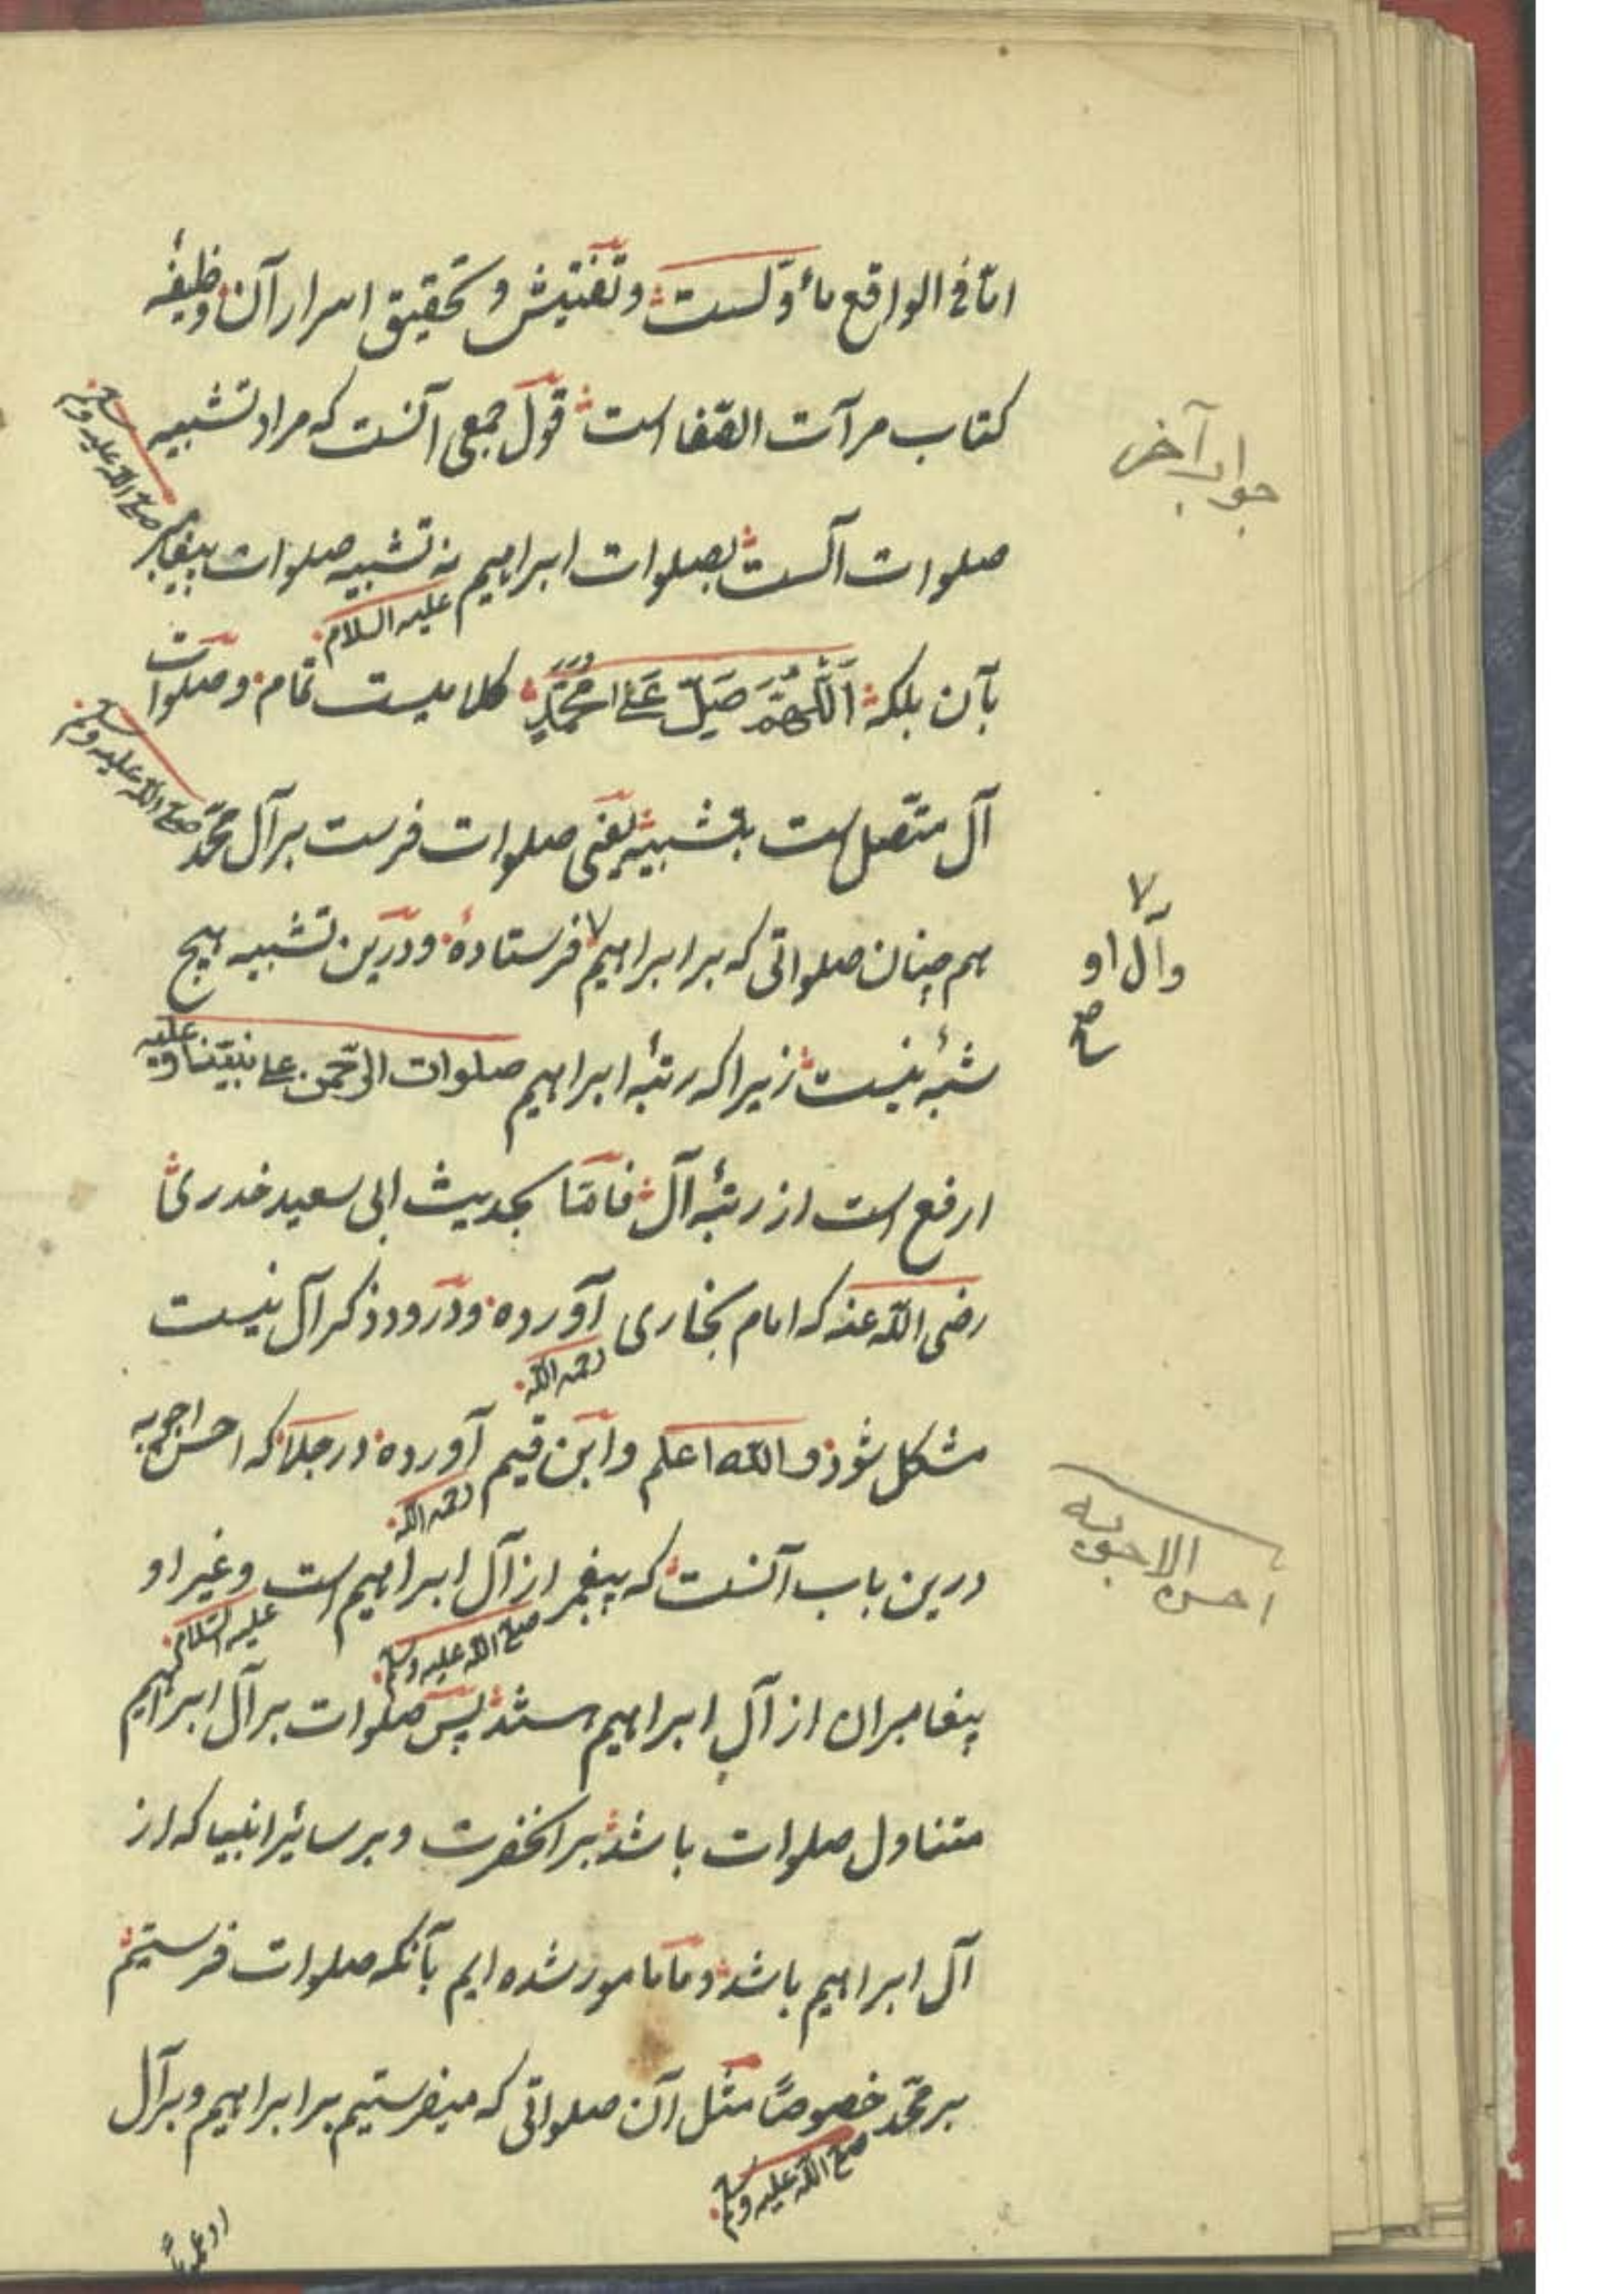 امّا فی الواقع مأوّلست و تفتیش و تحقیق اسرار آن وظیفهٔ
کتاب مرآت الصّفا است قول جمعی آنست که مراد تشبیه
صلوات آلست بصلوات ابراهیم علیه السلام نه تشبیه صلوات پیغامبر صلی الله علیه وسلم
بآن بلکه اَللّٰهُمَّ صَلِّ عَلٰی مُحَمَّدٍ کلامیست تمام و صلوات
آل متّصل است بتشبیه یعنی صلوات فرست بر آل محمّد صلی الله علیه وسلم
هم چنان صلواتی که بر ابراهیم فرستادهٔ و درین تشبیه هیچ
شبهٔ نیست زیرا که رتبهٔ ابراهیم صلوات الرّحمن علی نبیّنا و علیه
ارفع است از رتبهٔ آل فامّا بحدیث ابی سعید خدری
رضی الله عنه که امام بخاری رحمه الله آورده و در و ذکر آل نیست
مشکل شود و الله اعلم و ابن قیم رحمه الله آورده در جلا که احسن اجوبه
درین باب آنست که پیغمبر صلی الله علیه وسلم از آل ابراهیم است و غیر او علیه السّلام
پیغامبران از آلِ ابراهیم هستند پس صلوات بر آل ابراهیم
متناول صلوات باشد بر آنحضرت و بر سائر انبیا که از
آل ابراهیم باشد و ما مامور شده ایم بآنکه صلوات فرستیم
بر محمّد صلی الله علیه وسلم خصوصًا مثل آن صلواتی که میفرستیم بر ابراهیم و بر آل
او عمومًا
جواب آخر
و آل او
صح
احسن الاجوبه